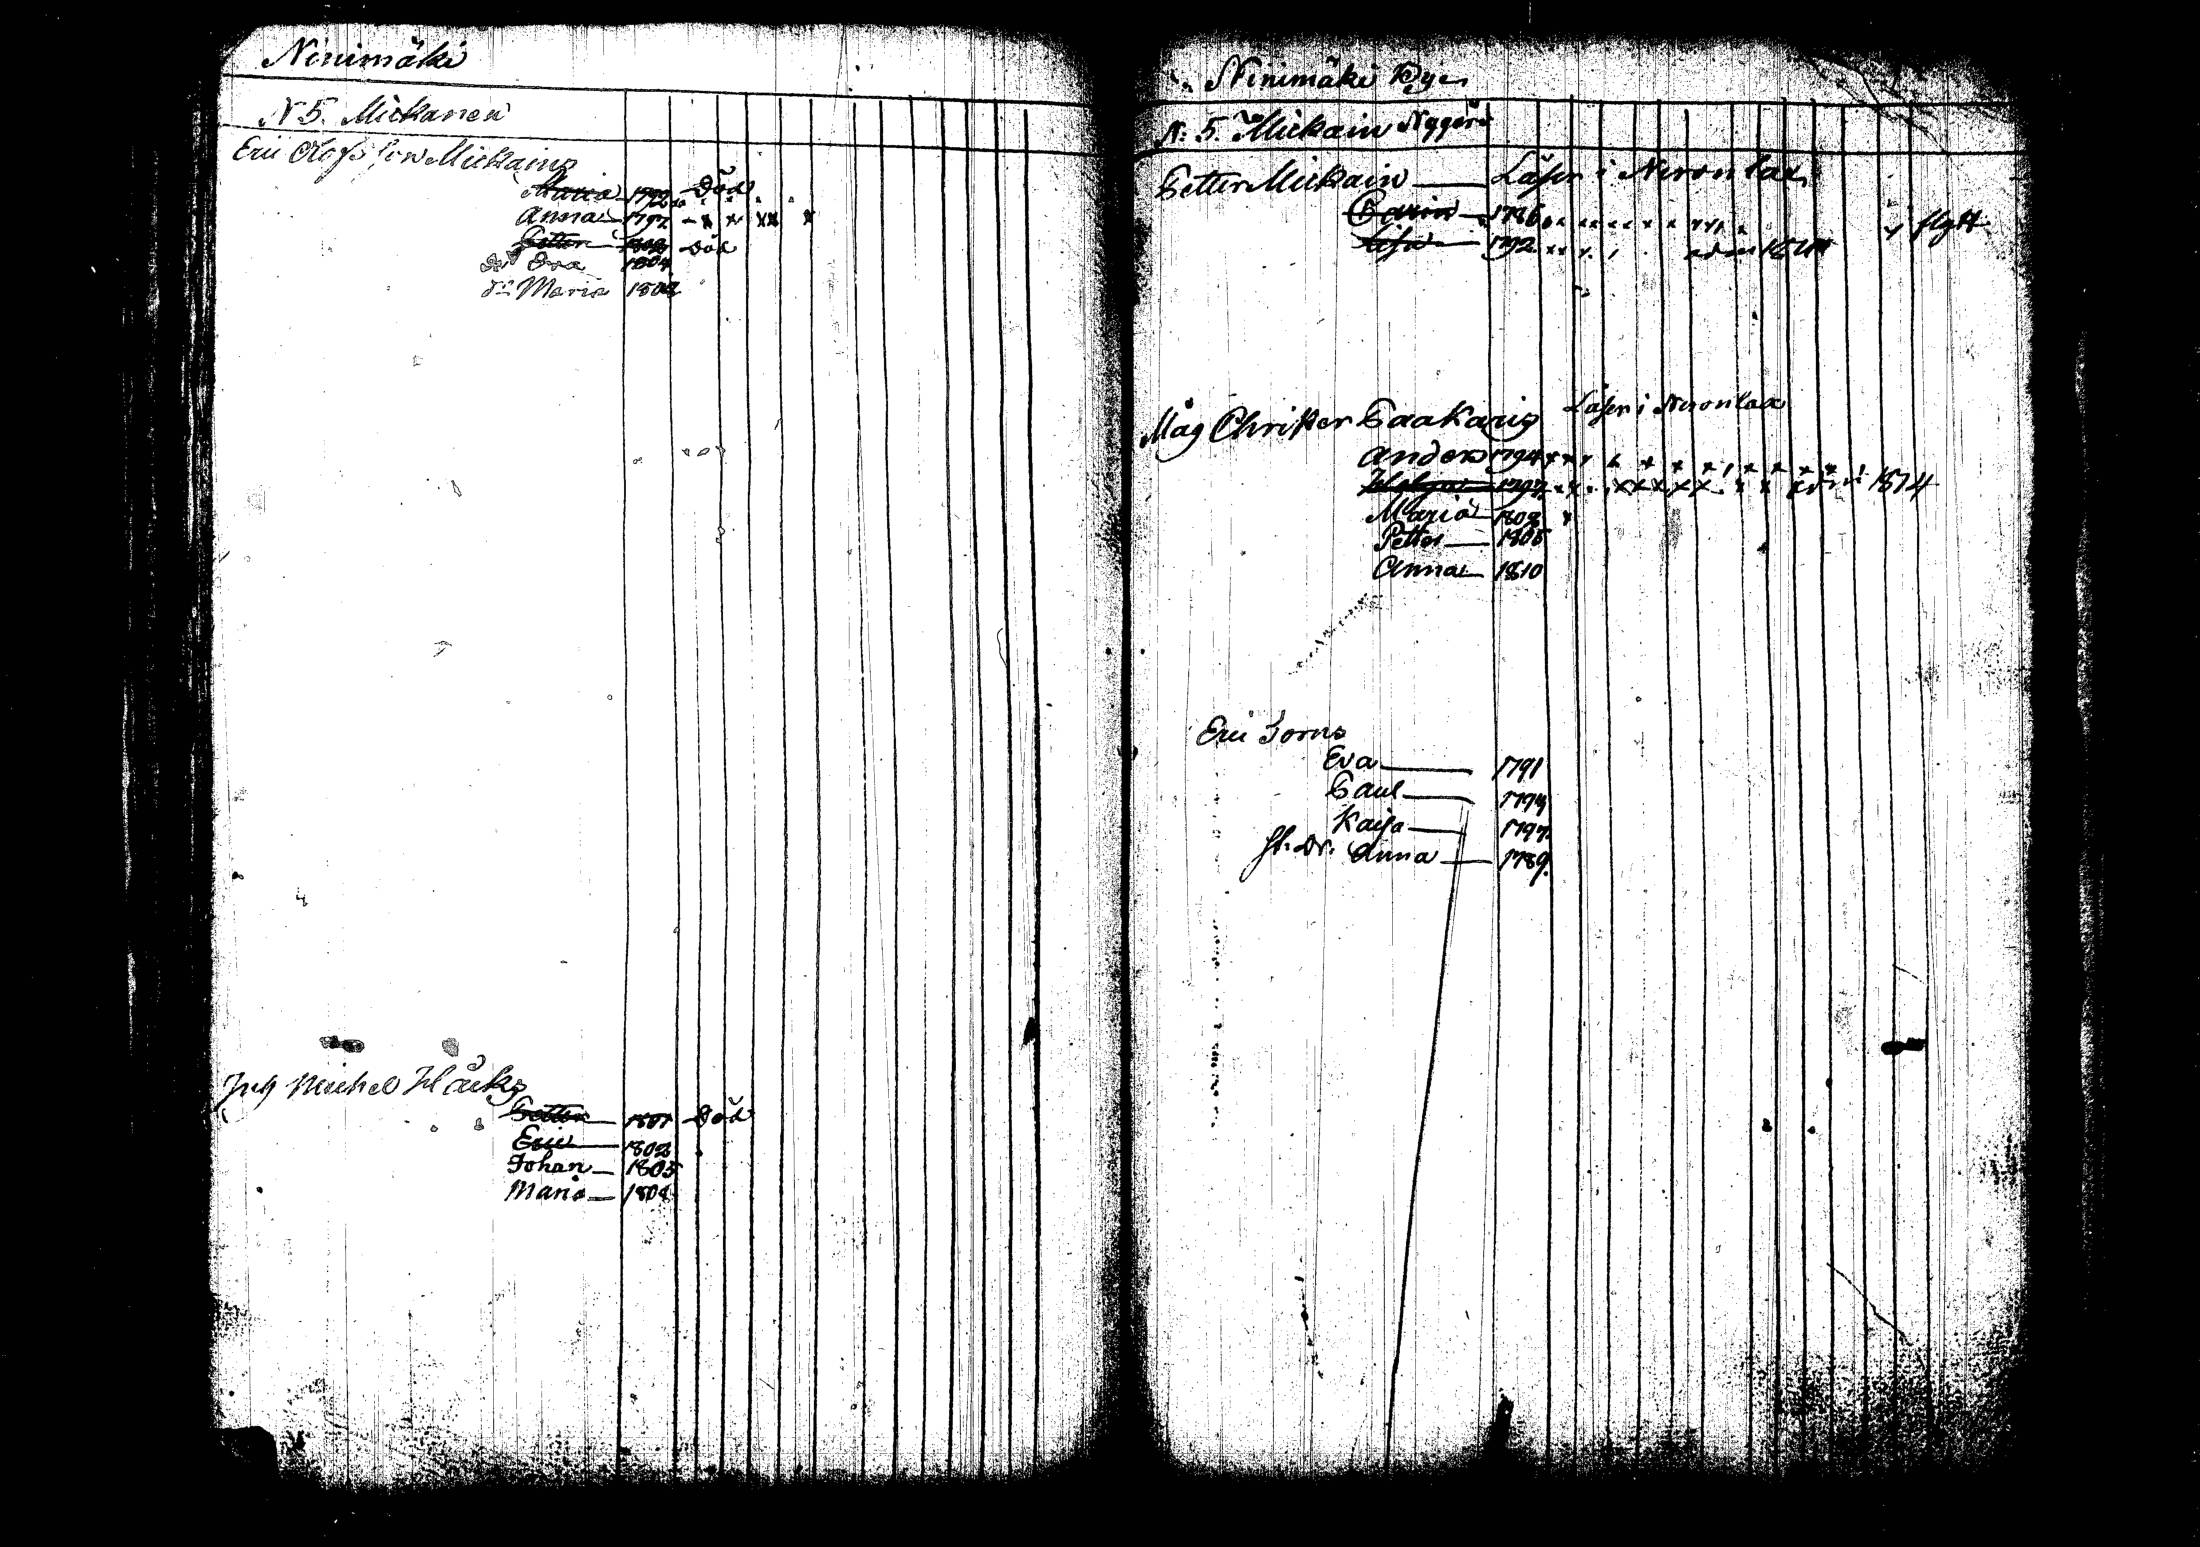 Ninimäki
N 5. Mickanen
Eric Olofs son Mickains
Maria 1792 Död
Anna 1797 - x x xx x
Petter 1802 Död
Dr Eva 1804
Dr Maria 1808
Inh Michel Häcks
Petter 1801 Död
Eric 1802
Johan 1805
Maria 1808
Ninimäki By
N: 5. Mickain Nygård
Petter Mickain Läser i Nironlax
Carin 1786 flytt
Lisa 1792 1814
Måg Christer Paakaris Läser i Nironlax
Anders 1794
Helga 1797 1814
Maria 1808
Petter 1805
Anna 1810
Eric Jorns
Eva 1791
Paul 1794
Kaisa 1797
St. Dr. Anna 1789.